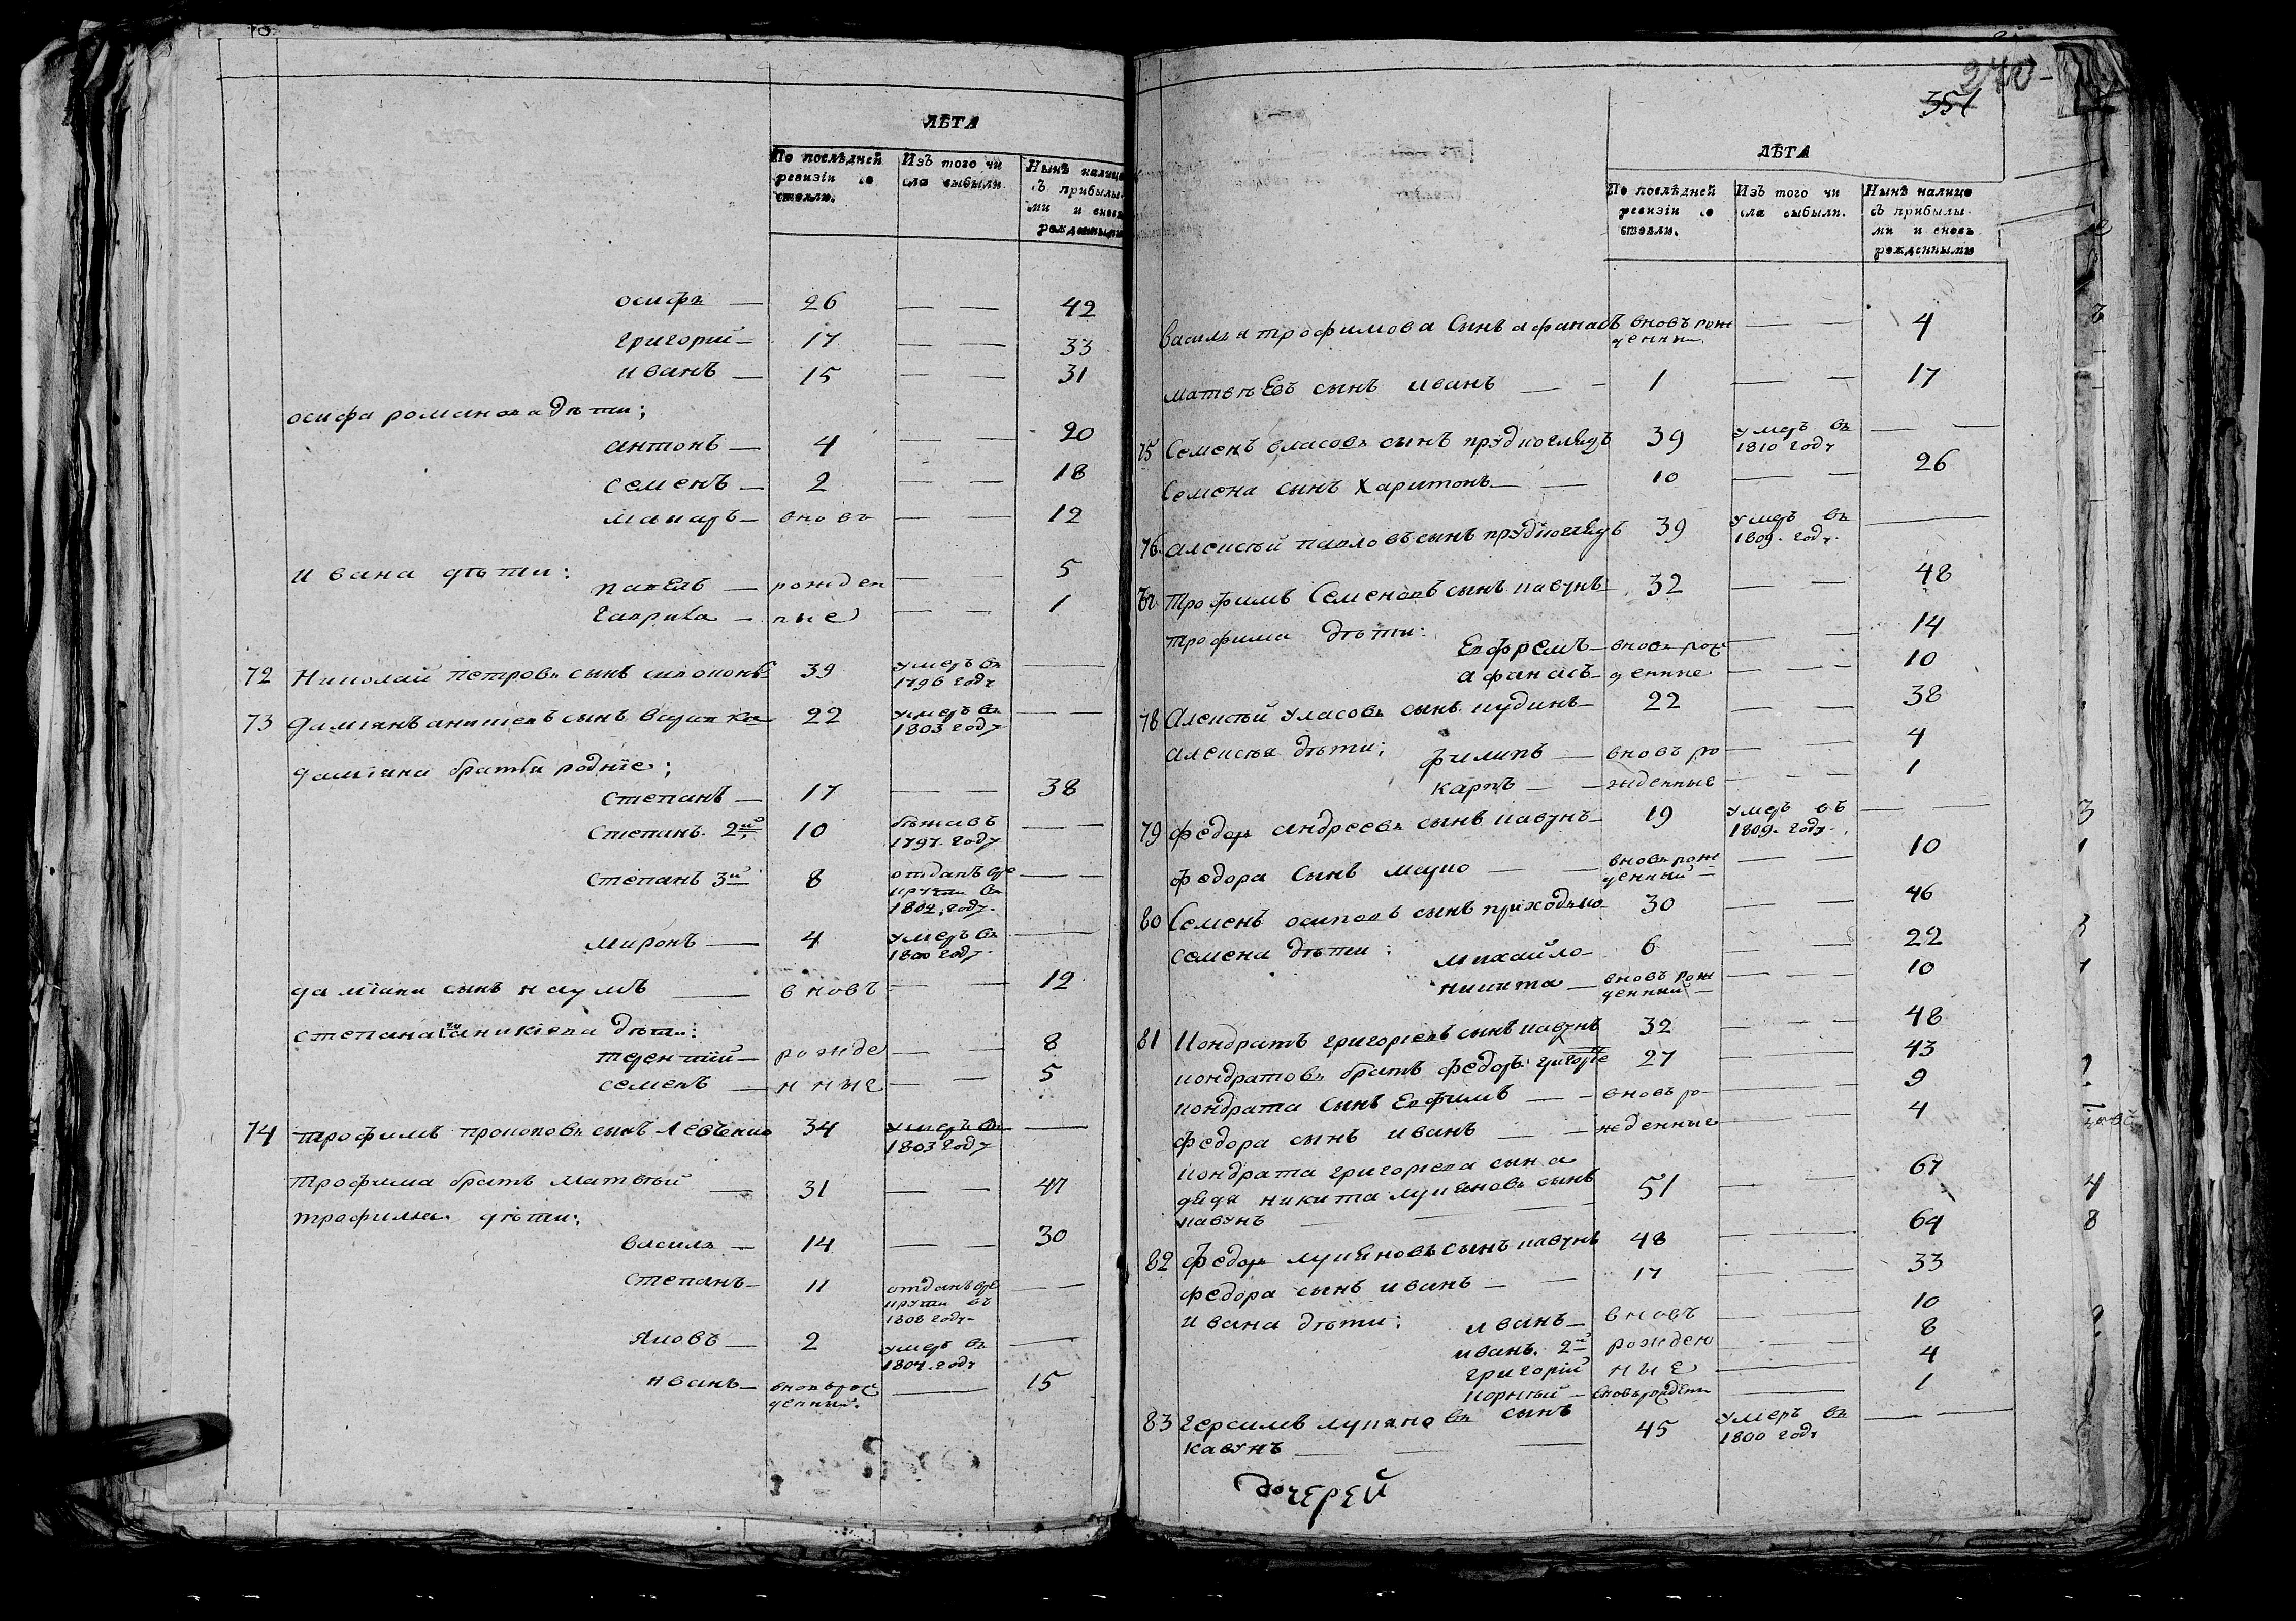 ЛѢТА
По послѣдней ревизіи состояло.
Изъ того числа выбыли.
Нынѣ налицо съ прибылыми и вновь рожденными
осифъ — 26 — — 42
григорий — 17 — — 33
иванъ — 15 — — 31
осифа романова дѣти:
антонъ — 4 — — 20
семенъ — 2 — — 18
макаръ — вновь — — 12
ивана дѣти:
павелъ — рожден — — 5
гаврила — ные — — 1
72 Николай петровъ сынъ 39 умеръ въ 1796 году —
73 дамианъ сынъ 22 умеръ въ 1803 году — —
даміана братья родние:
степанъ — 17 — — 38
степанъ 2й 10 бѣжавъ 1797. году — —
степанъ 3й 8 отданъ в рекруты въ 1802. году. — —
миронъ — 4 умеръ въ 1800 году. —
даміана сынъ наумъ — вновь — — 12
степана аникіева дѣти:
терентий — рожде — — 8
семенъ — нные — — 5
74 трофимъ прокоповъ сынъ левченко 34 умеръ въ 1803 году —
трофима братъ матвѣй — 31 — — 47
трофима дѣти:
василь — 14 — — 30
степанъ — 11 отданъ в рекруты въ 1808 году — —
яковъ — 2 умеръ въ 1804. году —
иванъ — вновь рожденный. — 15
270
351
ЛѢТА
По послѣдней ревизіи состояли.
Изъ того числа выбыли.
Нынѣ налицо съ прибылыми и вновь рожденными
василя трофимова сынъ афанасъ вновь рожденны — — 4
матвѣевъ сынъ иванъ — — 1 — — 17
75 Семенъ власовъ сынъ 39 умеръ въ 1810 году — —
Семена сынъ Харитонъ — — 10 — — 26
76 алексѣй павловъ сынъ 39 умеръ въ 1809. году. —
трофимъ Семеновъ сынъ кавунъ 32 — — 48
трофима дѣти:
Евфремъ — вновь рож — — 14
афанасъ — денные — — 10
78 Алексѣй уласовъ сынъ кудинъ — 22 — — 38
алексѣя дѣти:
филипъ — вновь ро — — 4
карпъ — — жденные — — 1
79 федоръ андреевъ сынъ кавунъ — 19 умеръ въ 1809. году. — —
федора сынъ марко — — вновь рожденный — — 10
80 Семенъ осиповъ сынъ приходько 30 — — 46
семена дѣти:
михайло — 6 — — 22
никита — вновь рожденный — — — 10
81 Кондратъ григориевъ сынъ кавунъ 32 — — 48
кондратовъ братъ федоръ 27 — — 43
кондрата сынъ Евфимъ — — вновь ро — 9
федора сынъ иванъ — — жденные — 4
кондрата григориева сына
дядя никита лукяновъ сынъ 51 — — 67
кавунъ — —
82 федоръ лукяновъ сынъ кавунъ 48 — 64
федора сынъ иванъ — — 17 — — 33
ивана дѣти:
иванъ — вновь — 10
иванъ. 2й рожден — — 8
григорій ные — 4
корнѣй — вновь рожденны — 1
83 герсимъ лукяновъ сынъ 45 умеръ въ 1800 году — —
кавунъ — — —
дочерей